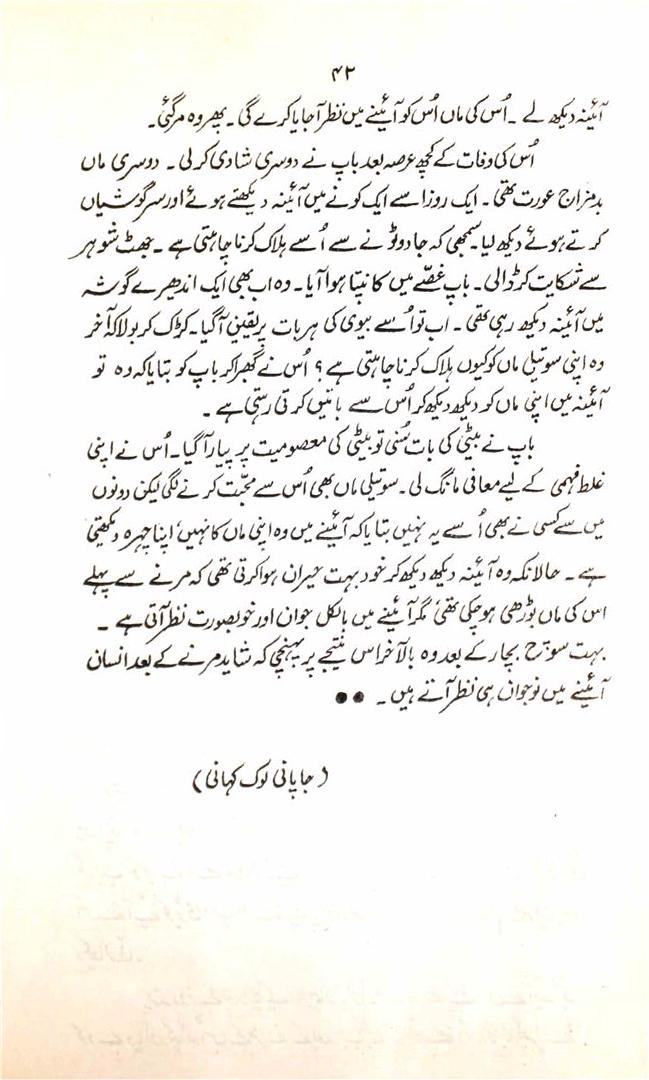 ۴۲
آئینہ دیکھ لے ۔ اُس کی ماں اُس کو آئینے میں نظر آجایا کرے گی ۔ پھر وہ مر گئی ۔
اُس کی وفات کے کچھ عرصہ بعد باپ نے دوسری شادی کر لی ۔ دوسری ماں
بدمزاج عورت تھی ۔ ایک روز اسے ایک کونے میں آئینہ دیکھتے ہوئے اور سرگوشیاں
کرتے ہوئے دیکھ لیا۔ سمجھی کہ جادو ٹونے سے اُسے ہلاک کرنا چاہتی ہے ۔ جھٹ شوہر
سے شکایت کر ڈالی ۔ باپ غصّے میں کانپتا ہوا آیا ۔ وہ اب بھی ایک اندھیرے گوشہ
میں آئینہ دیکھ رہی تھی ۔ اب تو اُسے بیوی کی ہر بات پر یقین آگیا ۔ کڑک کر بولا کہ آخر
وہ اپنی سوتیلی ماں کو کیوں ہلاک کرنا چاہتی ہے ؟ اُس نے گھبرا کر باپ کو بتایا کہ وہ تو
آئینہ میں اپنی ماں کو دیکھ دیکھ کر اُس سے باتیں کرتی رہتی ہے ۔
باپ نے بیٹی کی بات سُنی تو بیٹی کی معصومیت پر پیار آگیا ۔ اُس نے اپنی
غلط فہمی کے لیے معافی مانگ لی ۔ سوتیلی ماں بھی اُس سے محبّت کرنے لگی لیکن دونوں
میں سے کسی نے بھی اُسے یہ نہیں بتایا کہ آئینے میں وہ اپنی ماں کا نہیں، اپنا چہرہ دیکھتی
ہے ۔ حالانکہ وہ آئینہ دیکھ دیکھ کر خود بہت حیران ہوا کرتی تھی کہ مرنے سے پہلے
اس کی ماں بوڑھی ہوچکی تھی، مگر آئینے میں بالکل جوان اور خوبصورت نظر آتی ہے ۔
بہت سوچ بچار کے بعد وہ بالآخر اس نتیجے پر پہنچی کہ شاید مرنے کے بعد انسان
آئینے میں نوجوان ہی نظر آتے ہیں ۔ ●●
(جاپانی لوک کہانی)